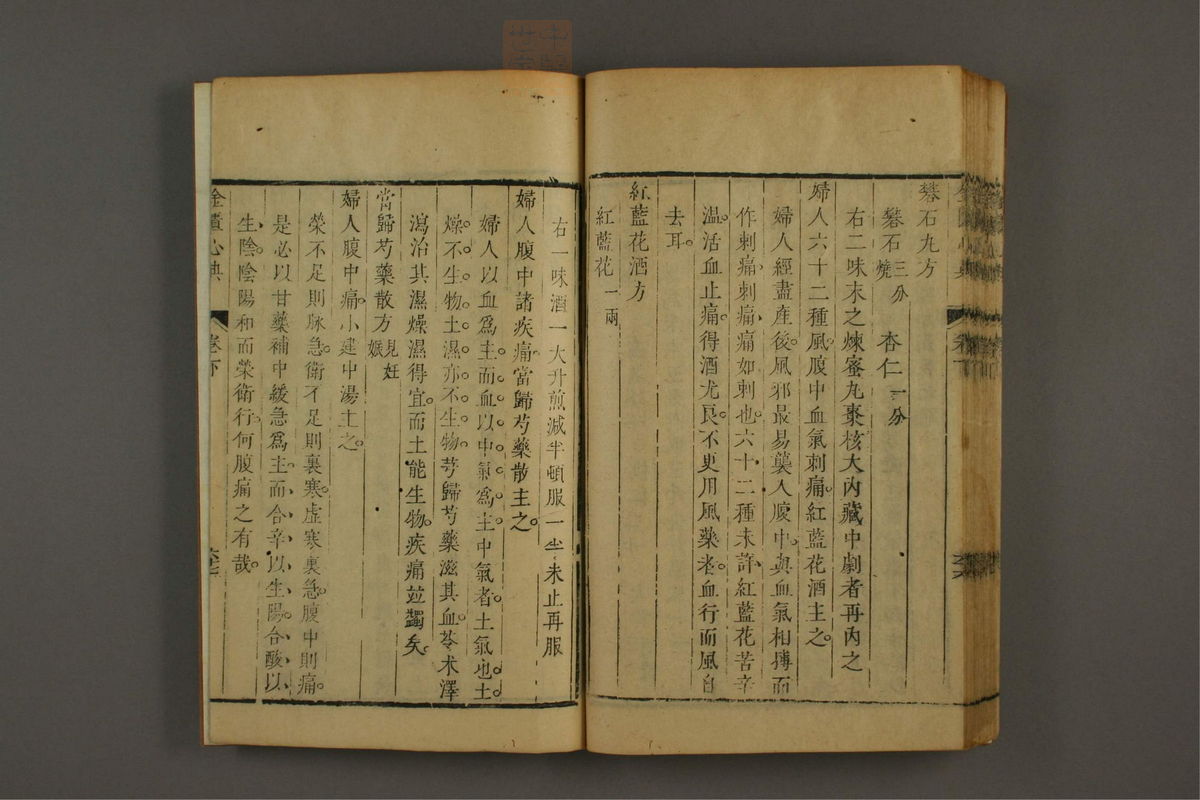 礬石丸方
礬石三分燒 杏仁一分
右二味末之煉蜜丸棗核大內藏中劇者再內之
婦人六十二種風腹中血氣刺痛紅藍花酒主之。
婦人經盡產後。風邪最易襲入腹中。與血氣相搏而
作刺痛、刺痛、痛如刺也。六十二種未詳、紅藍花苦辛
溫。活血止痛。得酒尤良。不更用風藥者。血行而風自
去耳。
紅藍花酒方
紅藍花一兩
右一味酒一大升煎減半頓服一半未止再服
婦人腹中諸疾痛。當歸芍藥散主之。
婦人以血爲主。而血以中氣爲主。中氣者。土氣也。土
燥不生物。土濕亦不生物。芎歸芍藥滋其血。苓朮澤
瀉治其濕。燥濕得宜。而土能生物。疾痛並蠲矣。
當歸芍藥散方見妊娠
婦人腹中痛。小建中湯主之。
榮不足則脉急。衛不足則裏寒。虛寒裏急。腹中則痛。
是必以甘藥補中緩急爲主。而合辛以生陽。合酸以
生陰。陰陽和而榮衛行。何腹痛之有哉。
金匱心典 卷下